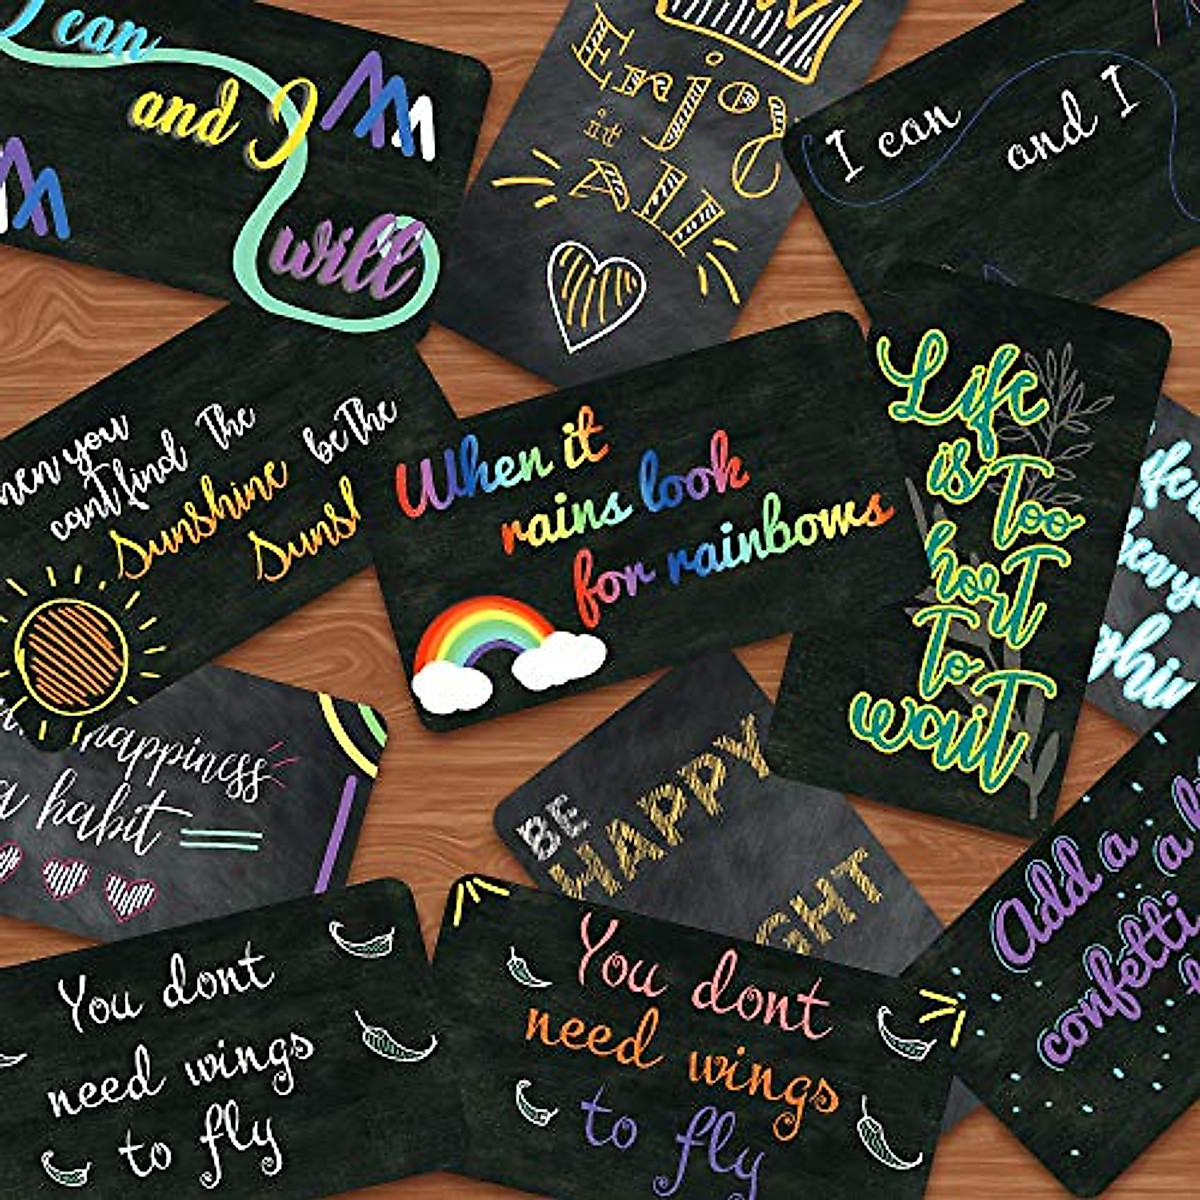 I can
and I
will
Enjoy
it
All
I can
and I
when you
can't find the
Sunshine be the
Suns
When it
rains look
for rainbows
Life
is Too
hort
To
wait
happiness
a habit
BE
HAPPY
GHT
Add a
confetti
You dont
need wings
to fly
You dont
need wings
to fly